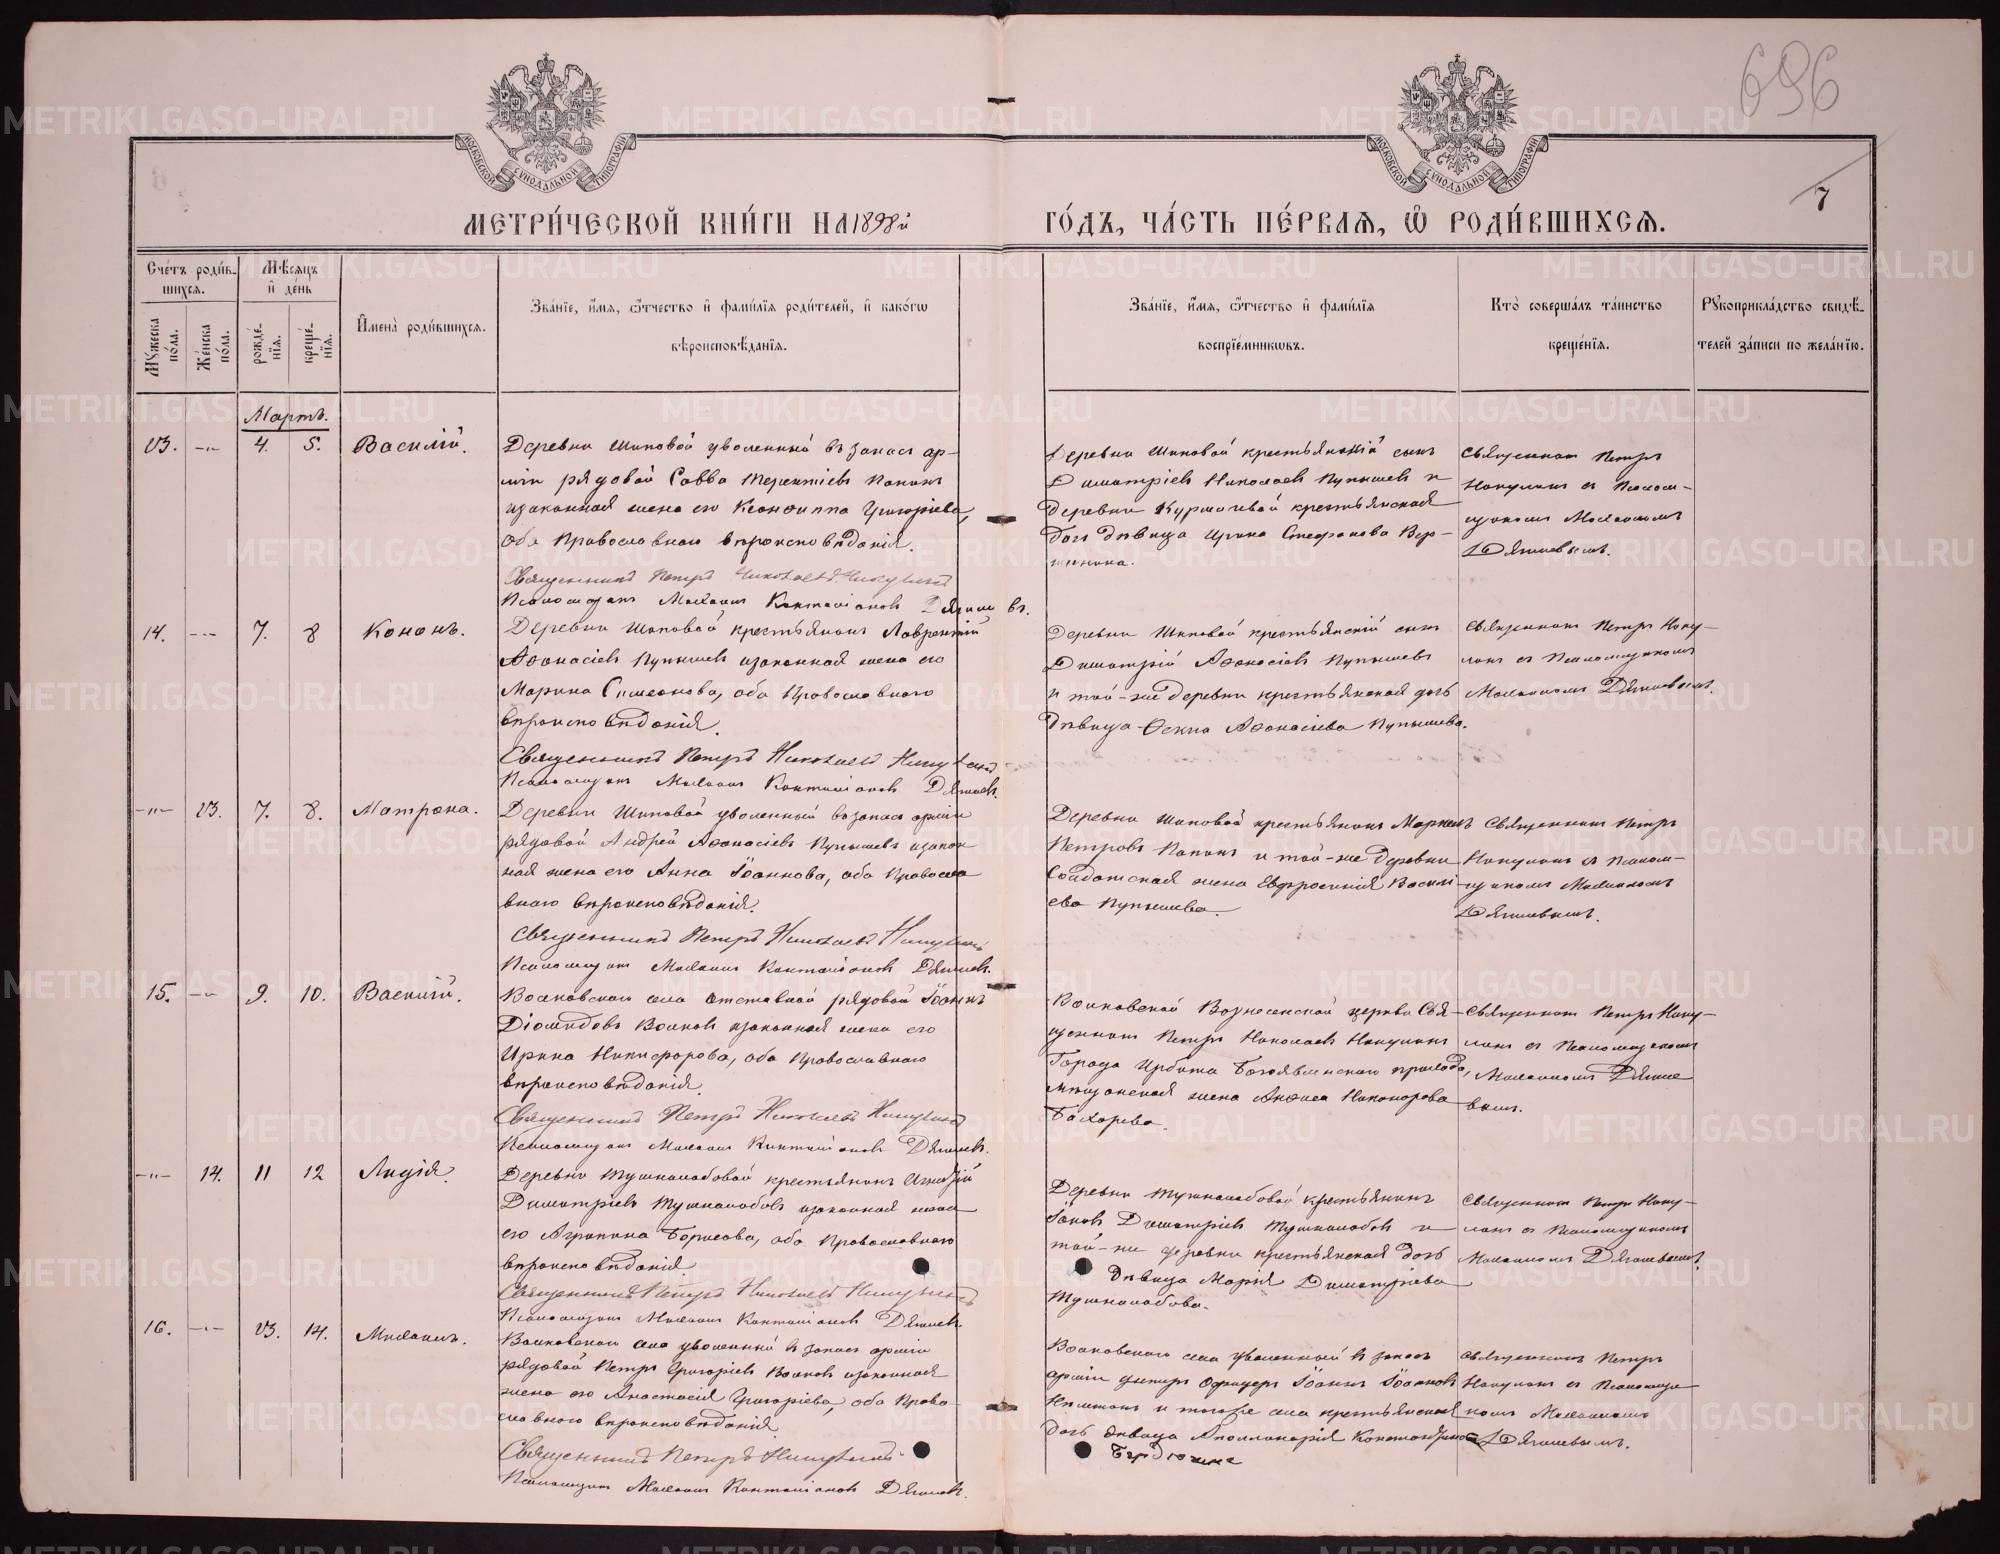 696
7
МОСКОВСКОЙ СѴНОДАЛЬНОЙ ТИПОГРАФІИ
МОСКОВСКОЙ СѴНОДАЛЬНОЙ ТИПОГРАФІИ
МЕТРИ́ЧЕСКОЙ КНИ́ГИ НА 1898й
ГО́ДЪ, ЧА́СТЬ ПЕ́РВАѦ, Ѿ РОДИ́ВШИХСѦ.
Сче́тъ роди́в-
шихсѧ.
Мѣ́сѧцъ
и҆ де́нь
Мꙋ́жеска по́ла.
Же́нска по́ла.
рожде́нїѧ.
креще́нїѧ.
И҆мена̀ роди́вшихсѧ.
Зва́нїе, и҆́мѧ, ѻ҆́тчество и҆ фами́лїѧ роди́телей, и҆ како́гѡ
вѣроисповѣ́данїѧ.
Зва́нїе, и҆́мѧ, ѻ҆́тчество и҆ фами́лїѧ
воспрїе́мникѡвъ.
Кто̀ соверша́лъ та́инство
креще́нїѧ.
Рꙋкоприкла́дство свидѣ́-
телей за́писи по жела́нїю.
Мартъ.
13. -„- 4. 5. Василій.
Деревни Шиповой уволенный въ запасъ ар-
міи рядовой Савва Терентіевъ Папинъ
и законная жена его Ксанфиппа Григоріева,
оба Православнаго вѣроисповѣданія.
Священникъ Петръ Николаевъ Никулинъ
Псаломщикъ Михаилъ Дягилевъ.
Деревни Шиповой крестьянскій сынъ
Димитрій Николаевъ Пупышевъ и
Деревни крестьянская
дочь дѣвица Ирина Стефанова
Священникъ Петръ
Никулинъ съ Псалом-
щикомъ Михаиломъ
Дягилевымъ.
14. --- 7. 8 Кононъ.
Деревни Шиповой крестьянинъ Лаврентій
Аѳанасіевъ Пупышевъ и законная жена его
Марина Симеонова, оба Православнаго
вѣроисповѣданія.
Священникъ Петръ Николаевъ Никулинъ
Псаломщикъ Михаилъ Дягилевъ.
Деревни Шиповой крестьянскій сынъ
Димитрій Аѳанасіевъ Пупышевъ
и той-же деревни крестьянская дочь
дѣвица Аѳанасіева Пупышева.
Священникъ Петръ Нику-
линъ съ Псаломщикомъ
Михаиломъ Дягилевымъ.
-„- 13. 7. 8. Матрона.
Деревни Шиповой уволенный въ запасъ арміи
рядовой Андрей Аѳанасіевъ Пупышевъ и закон-
ная жена его Анна Іоаннова, оба Правосла
внаго вѣроисповѣданія.
Священникъ Петръ Николаевъ Никулинъ
Псаломщикъ Михаилъ Дягилевъ.
Деревни Шиповой крестьянинъ
Петровъ Папинъ и той-же деревни
Солдатская жена Евфросинія Василі
ева Пупышева.
Священникъ Петръ
Никулинъ съ Псалом-
щикомъ Михаиломъ
Дягилевымъ.
15. -„- 9. 10. Василій.
Волковскаго села отставной рядовой Іоаннъ
Діомидовъ Волковъ и законная жена его
Ирина Никифорова, оба Православнаго
вѣроисповѣданія.
Священникъ Петръ Николаевъ Никулинъ
Псаломщикъ Михаилъ Дягилевъ.
Волковской Вознесенской церкви Свя-
щенникъ Петръ Николаевъ Никулинъ
Города Ирбита Богоявленскаго прихода,
мѣщанская жена Анфиса Никанорова
Бахарева.
Священникъ Петръ Нику-
линъ съ Псаломщикомъ
Михаиломъ Дягиле
вымъ.
-„- 14. 11 12 Лидія.
Деревни Тушколобовой крестьянинъ
Димитріевъ Тушколобовъ и законная жена
его Агрипина Борисова, оба Православнаго
вѣроисповѣданія.
Священникъ Петръ Николаевъ Никулинъ
Псаломщикъ Михаилъ Дягилевъ.
Деревни Тушколобовой крестьянинъ
Іаковъ Димитріевъ Тушколобовъ и
той-же деревни крестьянская дочь
дѣвица Марія Димитріева
Тушколобова.
Священникъ Петръ Нику-
линъ съ Псаломщикомъ
Михаиломъ Дягилевымъ.
16. -„- 13. 14. Михаилъ.
Волковскаго села уволенный въ запасъ арміи
рядовой Петръ Григоріевъ Волковъ и законная
жена его Анастасія Григоріева, оба Право-
славнаго вѣроисповѣданія.
Священникъ Петръ Никулинъ
Псаломщикъ Михаилъ Дягилевъ.
Волковскаго села уволенный въ запасъ
арміи унтеръ Офицеръ Іоаннъ Іоанновъ
и того же села крестьянская
дочь дѣвица Аполлинарія Константинова
Бердюгина
Священникъ Петръ
Никулинъ съ Псаломщи
комъ Михаиломъ
Дягилевымъ.
METRIKI.GASO-URAL.RU